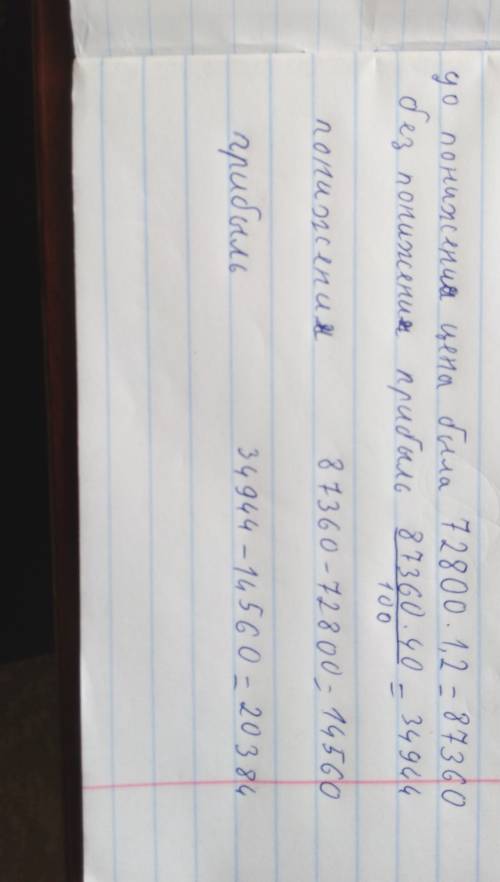 до понижения цена была 72800 · 1,2 = 87360
без понижения прибыль 87360 · 40 / 100 = 34944
понижения 87360 - 72800 = 14560
прибыль 34944 - 14560 = 20384